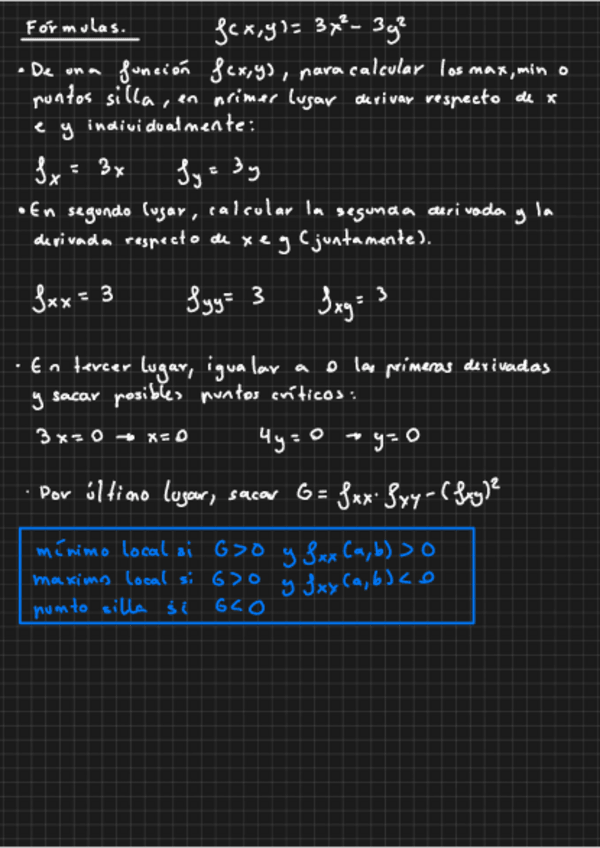 Fórmulas. f(x,y) = 3x² - 3y²
• De una función f(x,y), para calcular los max, min o
puntos silla, en primer lugar derivar respecto de x
e y individualmente:
fx = 3x fy = 3y
• En segundo lugar, calcular la segunda derivada y la
derivada respecto de x e y (juntamente).
fxx = 3 fyy = 3 fxy = 3
· En tercer lugar, igualar a 0 las primeras derivadas
y sacar posibles puntos críticos:
3x = 0 → x = 0 4y = 0 → y = 0
· Por último lugar, sacar G = fxx · fxy - (fxy)²
mínimo local si G > 0 y fxx (a,b) > 0
maximo local si G > 0 y fxx (a,b) < 0
punto silla si G < 0